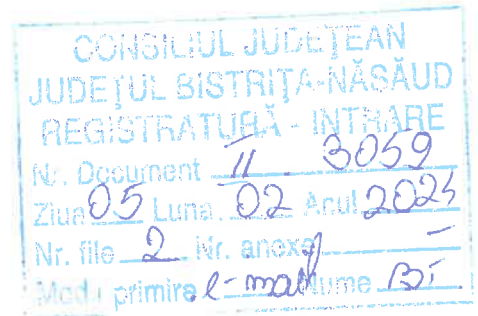 CONSILIUL JUDEȚEAN
JUDEȚUL BISTRIȚA-NĂSĂUD
REGISTRATURĂ - INTRARE
Nr. Document II. 3059
Ziua 05 Luna 02 Anul
Nr. file 2 Nr. anexe -
primire e-mail Nume